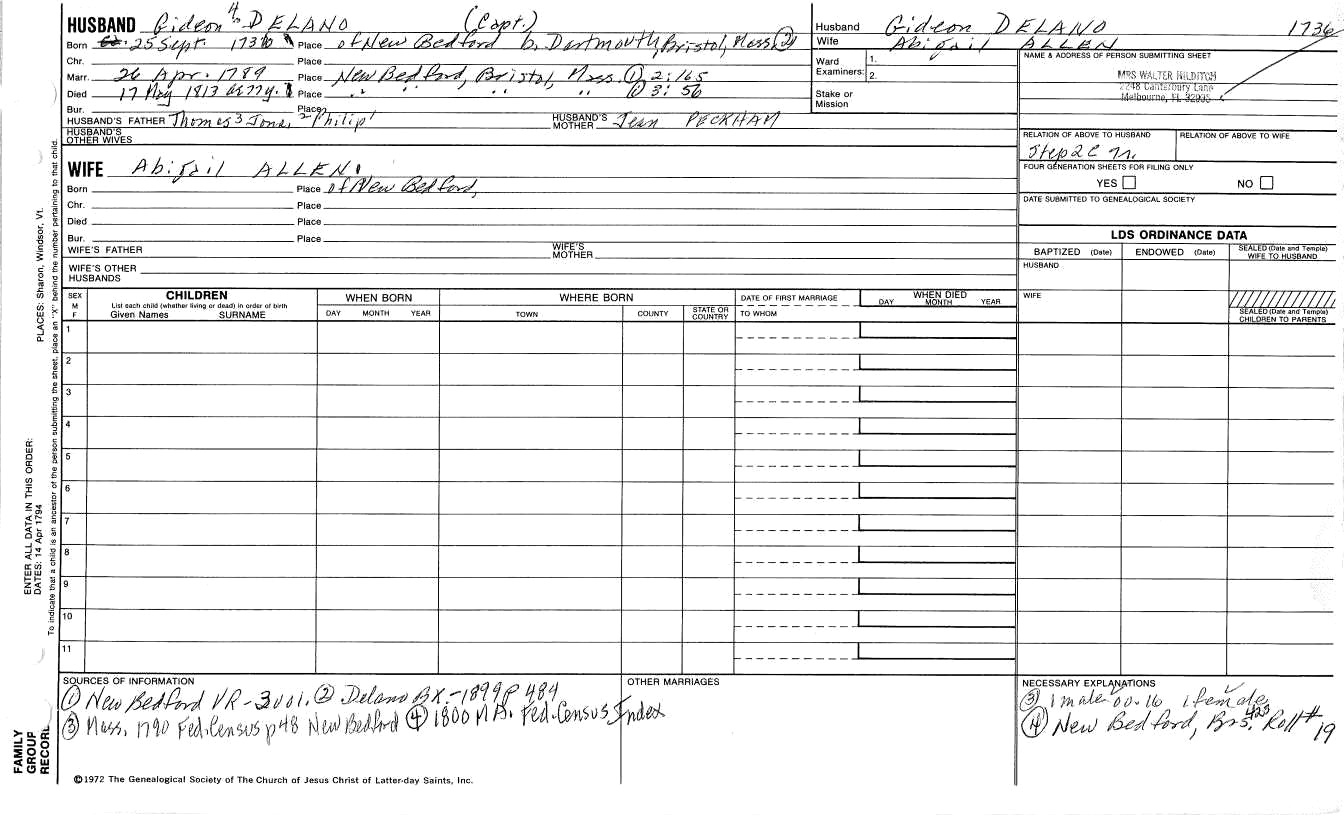 HUSBAND Gideon 4 DELANO (Capt.)
Born 25 Sept. 1736 Place of New Bedford b. Dartmouth, Bristol, Mass. (2)
Chr. Place
Marr. 26 Apr. 1789 Place New Bedford, Bristol, Mass. (1) 2:165
Died 17 May 1813 ae 77y. Place " " " " (1) 3:56
Bur. Place
HUSBAND'S FATHER Thomas 3 Jona. 2 Philip 1 HUSBAND'S MOTHER Jean PECKHAM
HUSBAND'S OTHER WIVES
WIFE Abigail ALLEN
Born Place of New Bedford,
Chr. Place
Died Place
Bur. Place
WIFE'S FATHER WIFE'S MOTHER
WIFE'S OTHER HUSBANDS
Husband Gideon DELANO 1736
Wife Abigail ALLEN
Ward Examiners: 1.
2.
Stake or Mission
NAME & ADDRESS OF PERSON SUBMITTING SHEET
MRS WALTER HILDITCH
2248 Canterbury Lane
Melbourne, FL 32935
RELATION OF ABOVE TO HUSBAND RELATION OF ABOVE TO WIFE
Step 2C
FOUR GENERATION SHEETS FOR FILING ONLY
YES NO
DATE SUBMITTED TO GENEALOGICAL SOCIETY
LDS ORDINANCE DATA
BAPTIZED (Date) ENDOWED (Date) SEALED (Date and Temple) WIFE TO HUSBAND
HUSBAND
WIFE
SEALED (Date and Temple) CHILDREN TO PARENTS
SEX M F
CHILDREN
List each child (whether living or dead) in order of birth
Given Names SURNAME
WHEN BORN
DAY MONTH YEAR
WHERE BORN
TOWN COUNTY STATE OR COUNTRY
DATE OF FIRST MARRIAGE
TO WHOM
WHEN DIED
DAY MONTH YEAR
1
2
3
4
5
6
7
8
9
10
11
SOURCES OF INFORMATION
(1) New Bedford VR-3 vol. (2) Delano BX.-1899 p 484
(3) Mass. 1790 Fed. Census p 48 New Bedford (4) 1800 MA. Fed. Census Index
OTHER MARRIAGES
NECESSARY EXPLANATIONS
(3) 1 male 16 1 female
(4) New Bedford, Brs. 423 Roll # 19
©1972 The Genealogical Society of The Church of Jesus Christ of Latter-day Saints, Inc.
FAMILY GROUP RECORD
ENTER ALL DATA IN THIS ORDER:
DATES: 14 Apr 1794
PLACES: Sharon, Windsor, Vt.
To indicate that a child is an ancestor of the person submitting the sheet, place an "X" behind the number pertaining to that child.